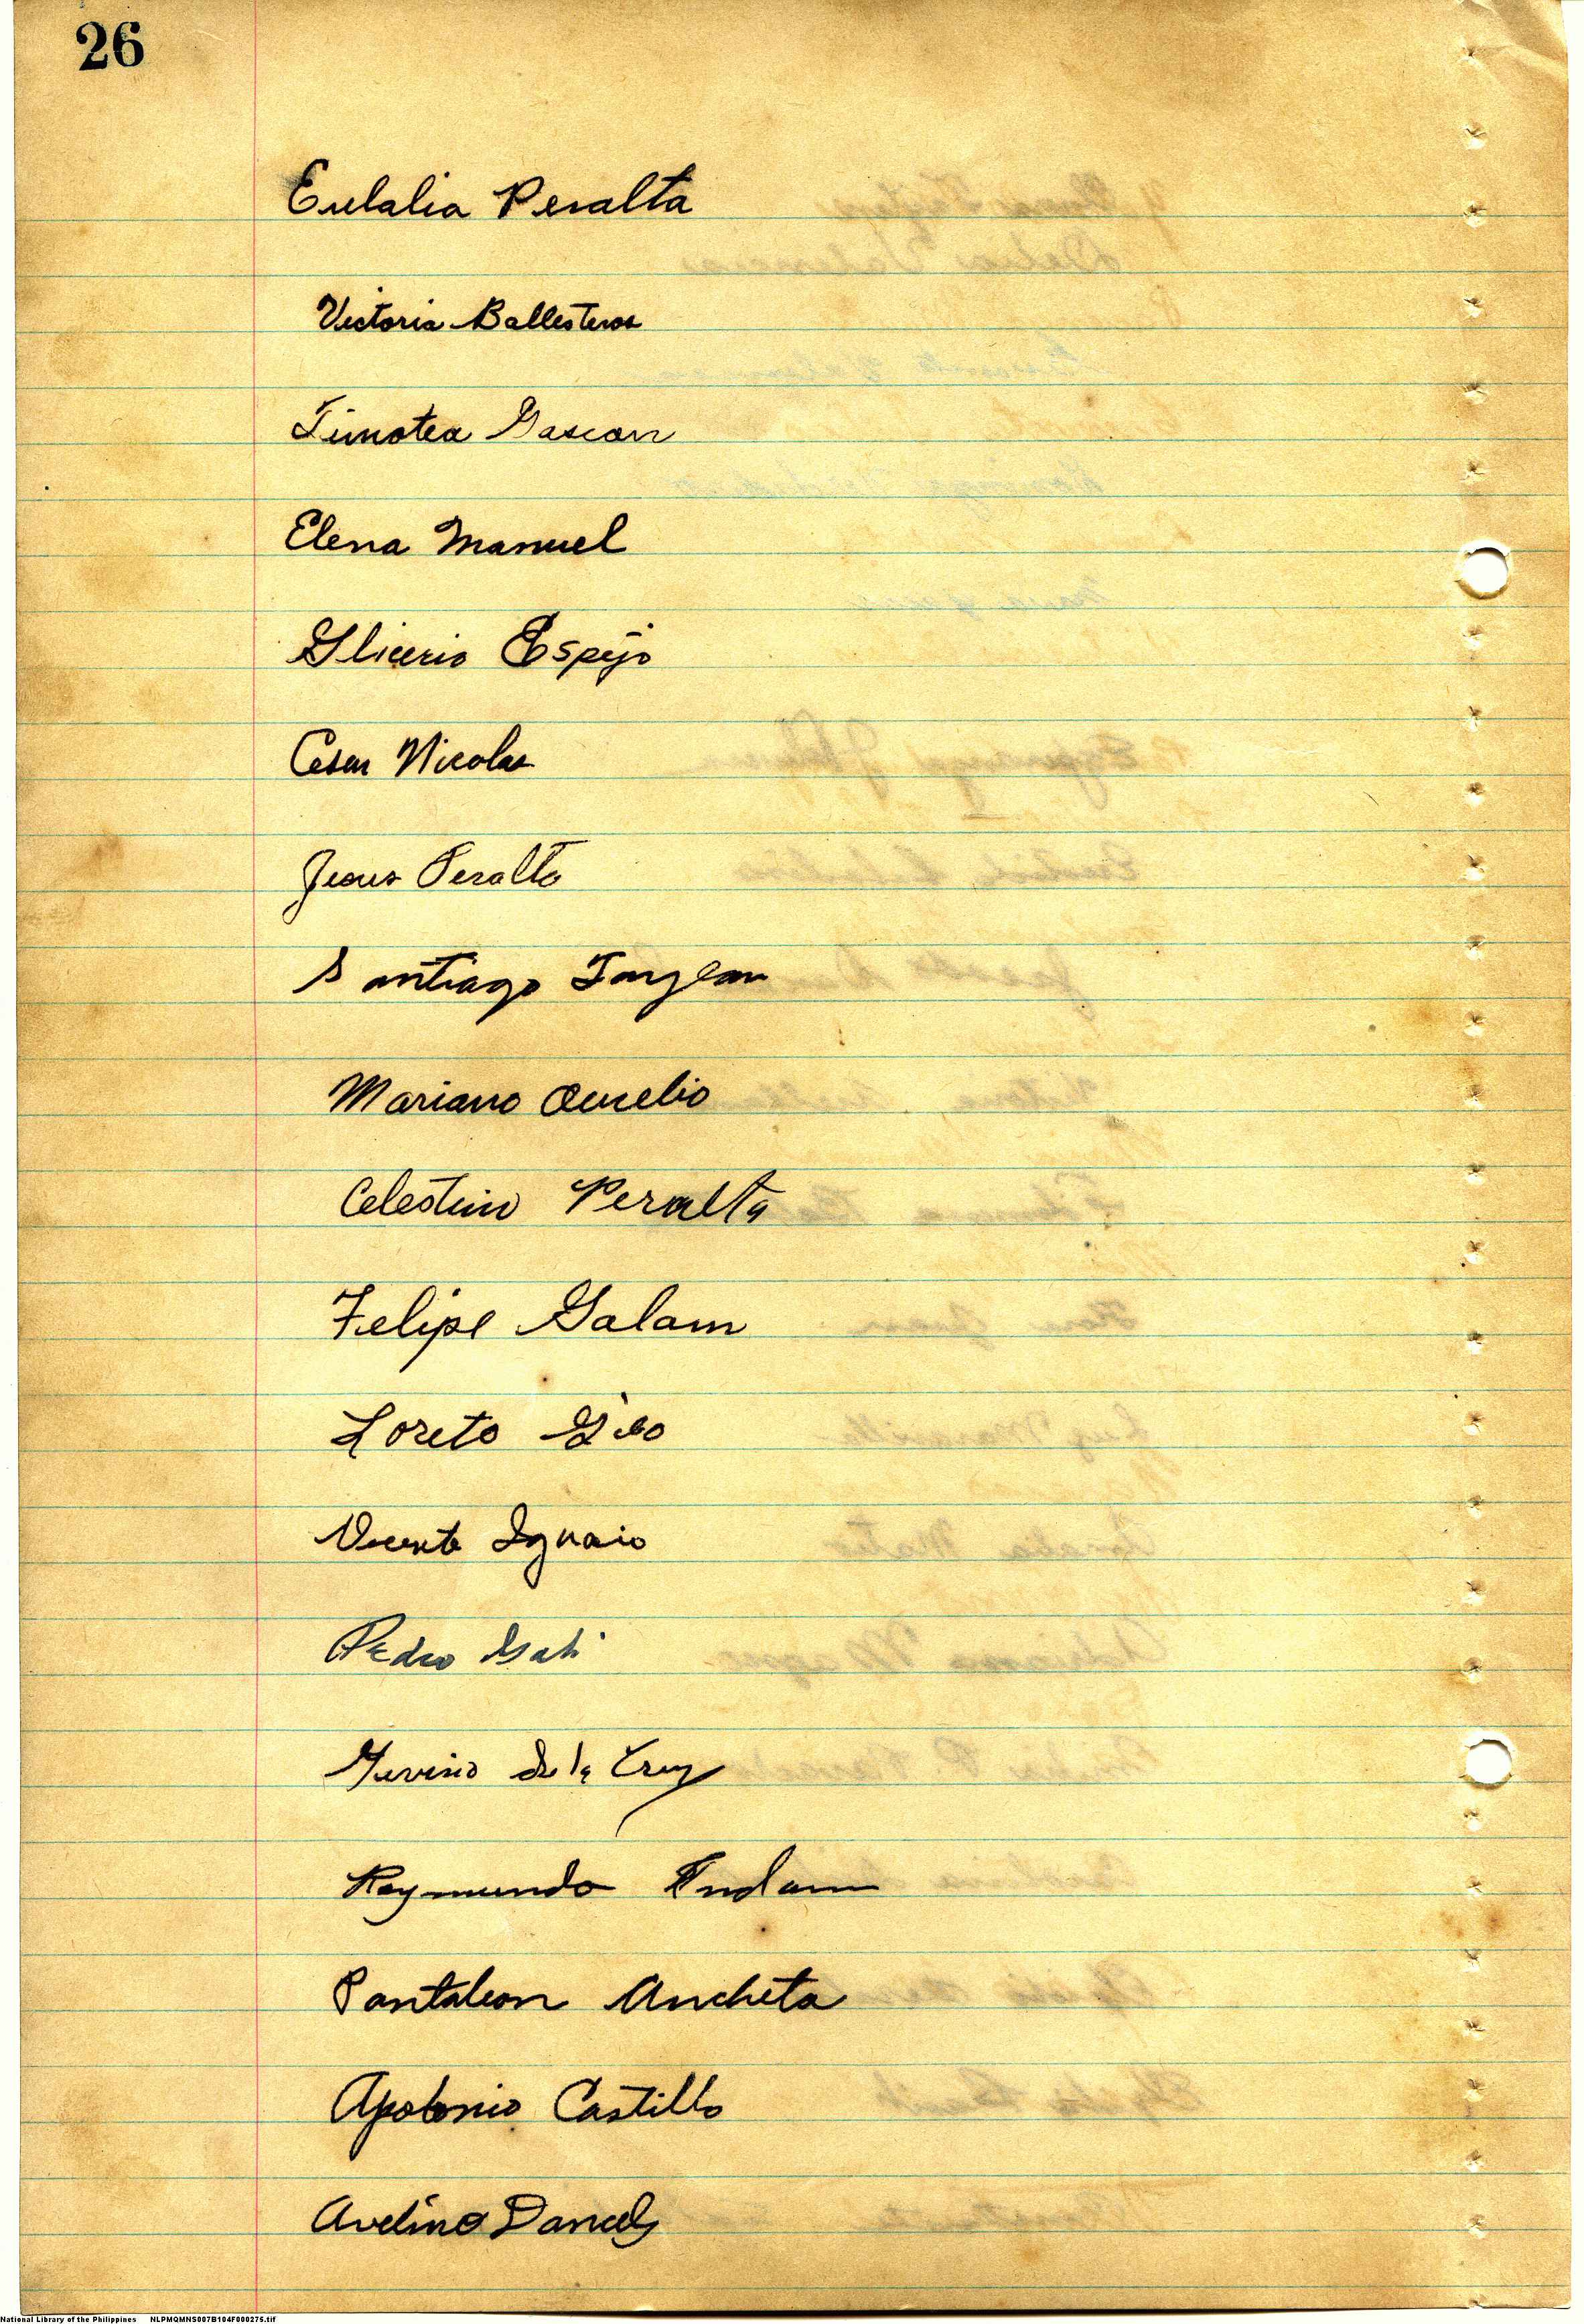 26
Eulalia Peralta
Victoria Ballesteros
Timotea Gascon
Elena Manuel
Glicerio Espejo
Cesar Nicolas
Jesus Peralta
Santiago
Mariano Aurelio
Celestino Peralta
Felipe Galam
Loreto
Vicente Ignacio
Pedro
de la Cruz
Raymundo
Pantaleon Ancheta
Apolonio Castillo
Avelino
National Library of the Philippines NLPMQMNS007B104F000275.tif